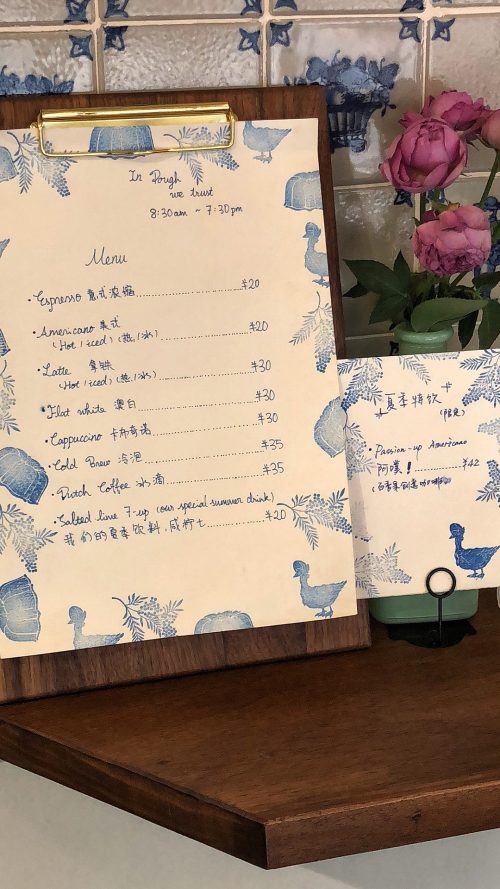 In Dough
we trust
8:30am ~ 7:30pm
Menu
· Espresso 意式浓缩..........¥20
· Americano 美式
(Hot / iced) (热 / 冰)..........¥20
· Latte 拿铁
(Hot / iced) (热 / 冰)..........¥30
· Flat white 澳白..........¥30
· Cappuccino 卡布奇诺..........¥30
· Cold Brew 冷泡..........¥35
· Dutch Coffee 冰滴..........¥35
· Salted lime 7-up (our special summer drink)
我们的夏季饮料，咸柠七..........¥20
夏季特饮
(限定)
· Passion-up Americano
阿噗！..........¥42